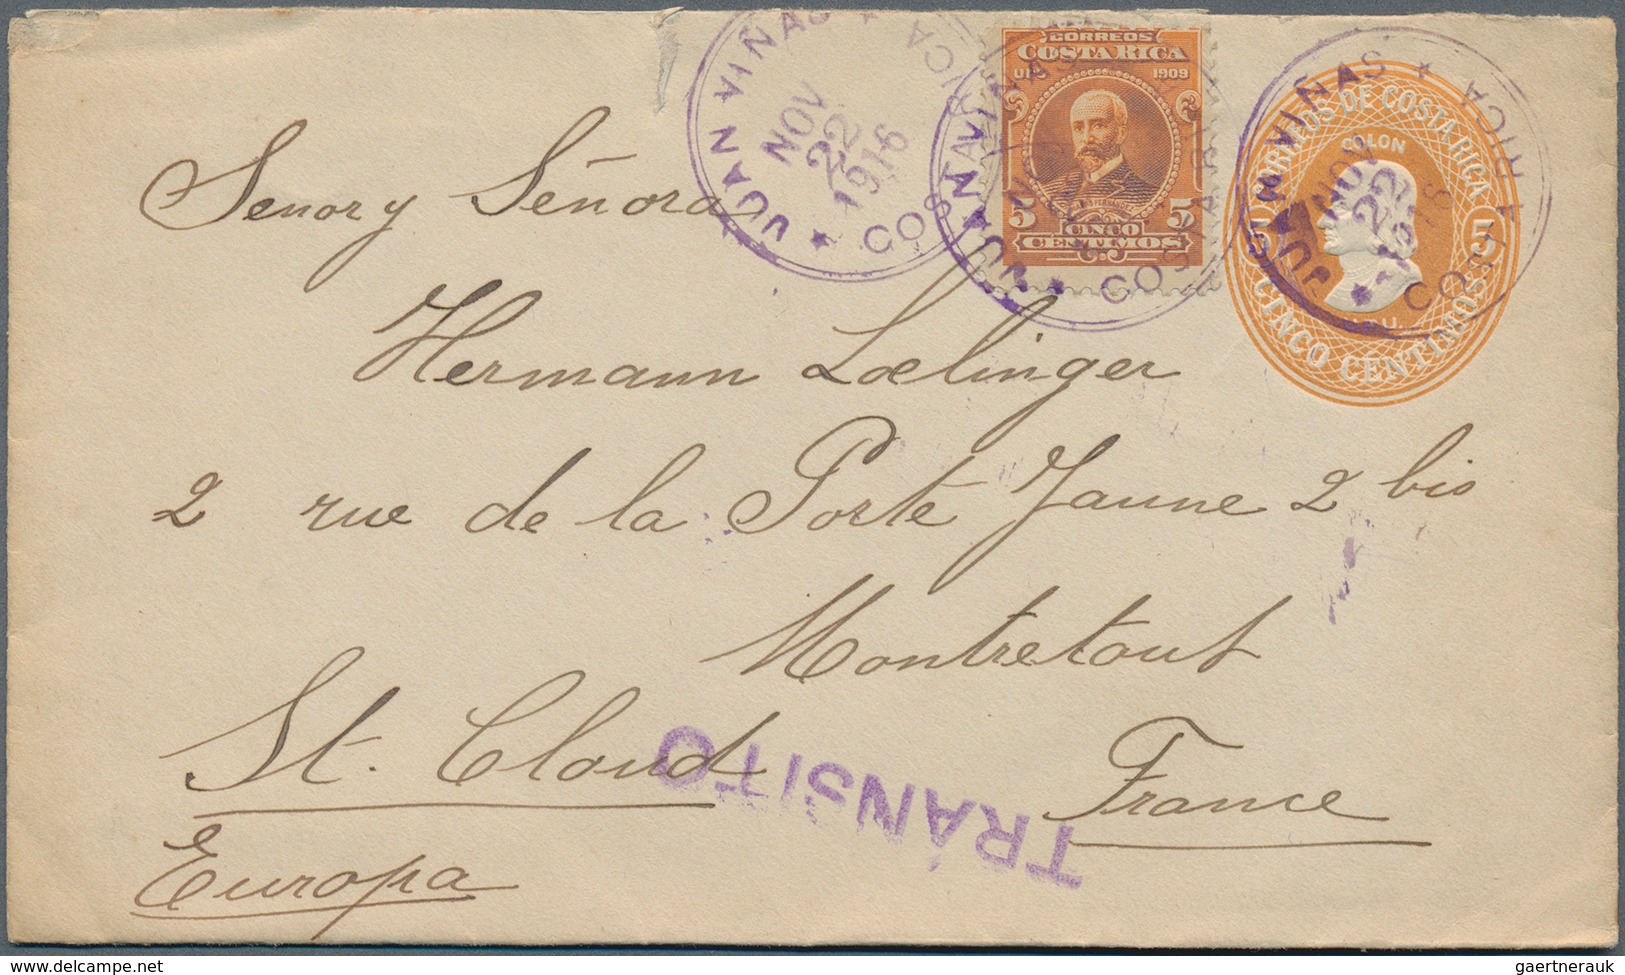 JUAN VIÑAS * COSTA RICA *
NOV
22
1916
CORREOS
COSTA RICA
1909
5 5
CINCO
CENTIMOS
JUAN VIÑAS * COSTA RICA
NOV
JUAN VIÑAS * COSTA RICA *
NOV
22
1916
CORREOS DE COSTA RICA
COLON
5 5
U.P.U.
CINCO CENTIMOS
Senor y Señora
Hermann Loelinger
2 rue de la Porte Jaune 2 bis
Montretout
St. Cloud France
TRÁNSITO
Europa
www.delcampe.net
gaertnerauk